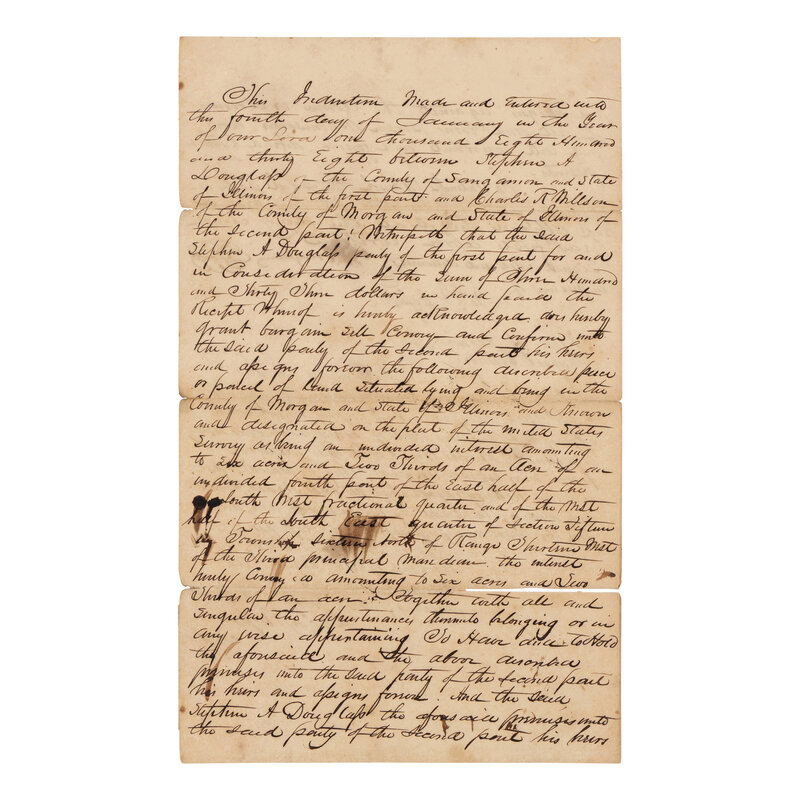 This Indenture Made and entered into
this fourth day of January in the Year
of our Lord one thousand Eight Hundred
and thirty Eight between Stephen A
Douglass of the County of Sangamon and State
of Illinois of the first part and Charles R Willson
of the County of Morgan and State of Illinois of
the second part! Witnesseth that the said
Stephen A Douglass party of the first part for and
in Consideration of the sum of Three Hundred
and Thirty Three dollars in hand paid the
Receipt Whereof is hereby acknowledged does hereby
grant bargain sell Convey and Confirm unto
the said party of the second part his heirs
and assigns forever the following described piece
or parcel of land situated lying and being in the
County of Morgan and State of Illinois and Known
and designated on the plat of the united States
Survey as being an undivided interest amounting
to six acres and Two Thirds of an Acre of an
undivided fourth part of the East half of the
South West fractional quarter and of the West
half of the South East quarter of Section Fifteen
in Township Sixteen North of Range Thirteen West
of the Third principal Meridian the interest
hereby Conveyed amounting to Six acres and Two
Thirds of an acre: Together with all and
Singular the appurtenances thereunto belonging or in
any wise appertaining To Have and to Hold
the aforesaid and the above described
premises unto the said party of the second part
his heirs and assigns forever. And the said
Stephen A Douglass the aforesaid premises unto
the said party of the second part his heirs